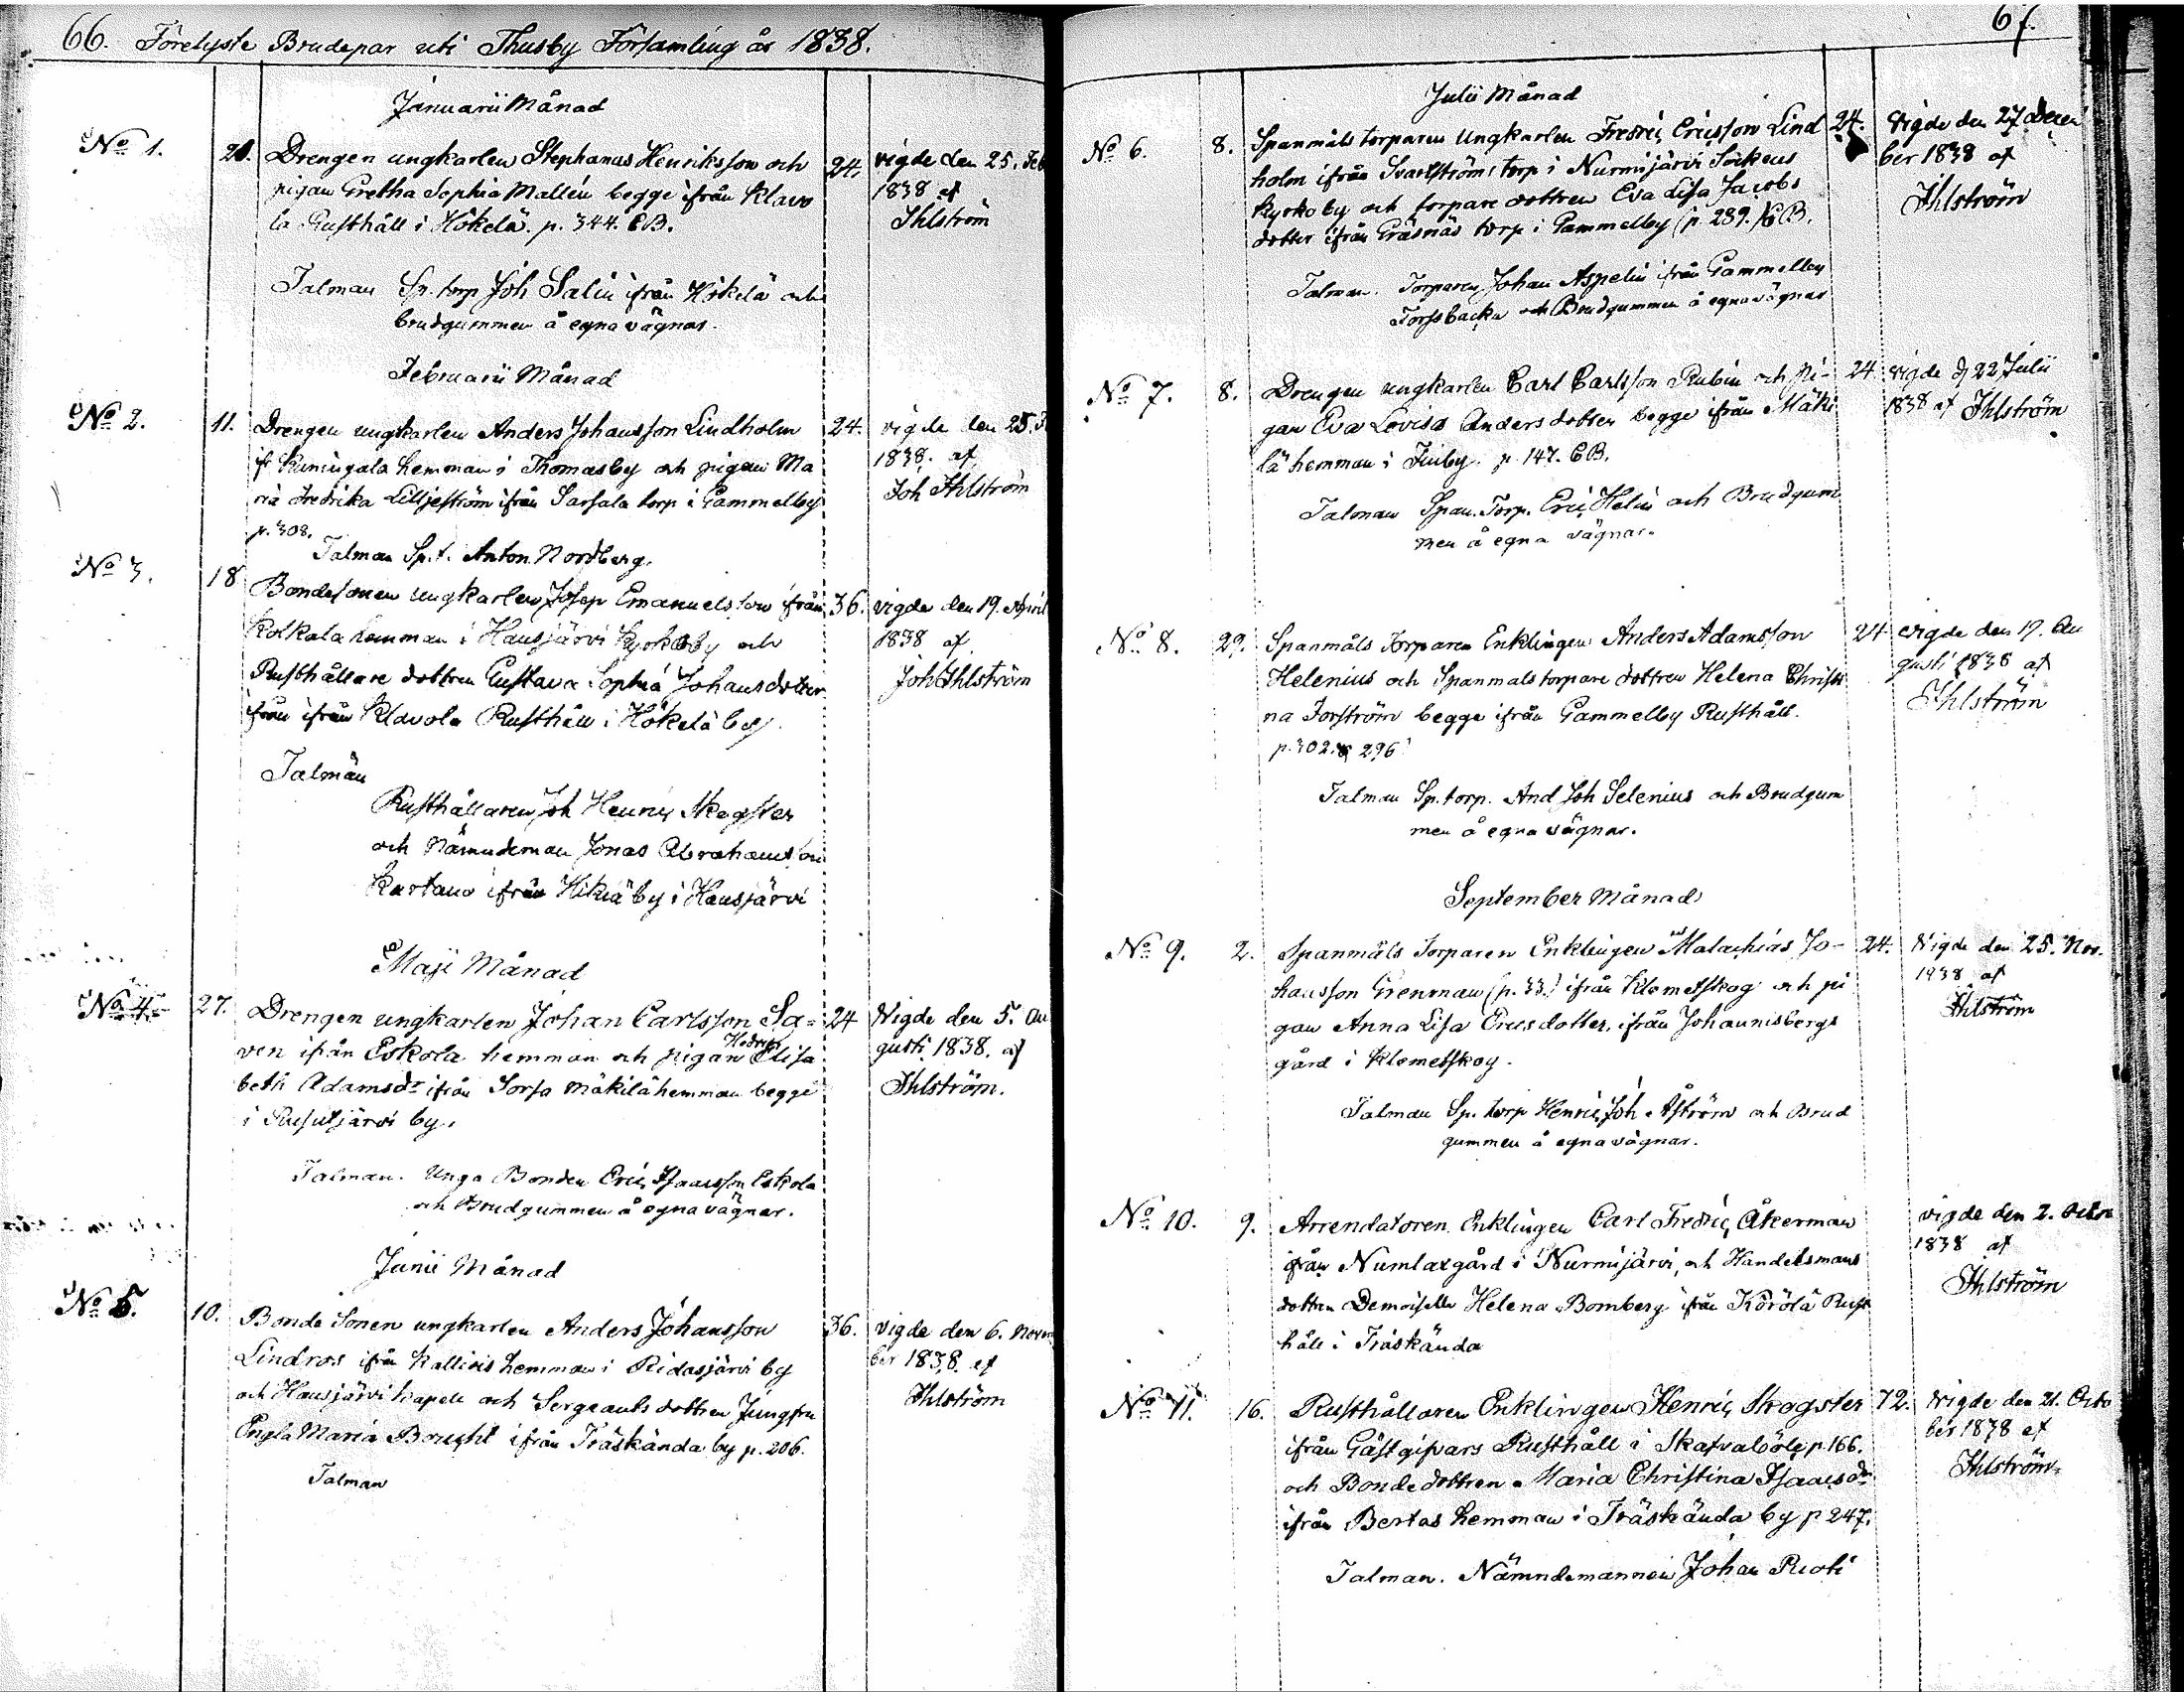 66. Förelyste Brudepar uti Thusby Församling år 1838.
Januarii Månad
No 1. 20. Drengen ungkarlen Stephanus Henriksson och 24. vigde den 25. Feb
pigan Gretha Sophia Mallén begge ifrån Klavo 1838 af
la Rusthåll i Hökelä. p. 344. CB. Ihlström
Talman Sp. torp Joh Salin ifrån Hökelä och
brudgummen å egna vägnar.
Februarii Månad
No 2. 11. Drengen ungkarlen Anders Johansson Lindholm 24. vigde den 25. F
ifr Kuningala hemman i Thomasby och pigan Ma 1838. af
ria Fredrika Lilljeström ifrån Sarsala torp i Gammelby Joh Ihlström
p. 308.
Talman Sp. t. Anton Nordberg.
No 3. 18 Bondesonen ungkarlen Josep Emanuelsson ifrån 36. vigde den 19. April
Kolkala hemman i Hausjärvi Kyrkoby och 1838 af
Rusthållare dottren Gustava Sophia Johansdotter Joh Ihlström
ifrån ifrån Klavola Rusthåll i Hökelä by.
Talmän
Rusthållaren Joh Henric Skogster
och Nämndeman Jonas Abrahamsson
Kartano ifrån Hikiä by i Hausjärvi
Maji Månad
No 4. 27. Drengen ungkarlen Johan Carlsson Sa= 24 Vigde den 5. Au
ven ifrån Eskola hemman och pigan Hedvig Elisa gusti 1838. af
beth Adamsdr ifrån Sorsa Mäkilä hemman begge Ihlström.
i Rusutjärvi by.
Talman. Unga Bonden Eric Isaacsson Eskola
och Brudgummen å egna vägnar.
Junii Månad
No 5. 10. Bonde Sonen ungkarlen Anders Johansson 36. vigde den 6. Novem
Lindros ifrån Kallixis hemman i Ridasjärvi by ber 1838. af
och Hausjärvi Capell och Sergeants dottren Jungfru Ihlström
Engla Maria Boucht ifrån Träskända by p. 206.
Talman
67.
Julii Månad
No 6. 8. Spanmåls torparen Ungkarlen Fredric Ericsson Lind 24. Vigde den 27 Decem
holm ifrån Svartströms torp i Nurmijärvi Sockens ber 1838 af
Kyrkoby och torpare dottren Eva Lisa Jacobs Ihlström
dotter ifrån Gräsnäs torp i Gammelby (p. 289.) CB.
Talman. Torparen Johan Aspelin ifrån Gammelby
Forssbacka och Brudgummen å egna vägnar
No 7. 8. Drengen ungkarlen Carl Carlsson Rubin och pi- 24 vigde d 22 Julii
gan Eva Lovisa Anders dotter begge ifrån Mäki 1838 af Ihlström
lä hemman i Finby. p. 147. CB.
Talman Span. Torp. Eric Helin och Brudgum
men å egna vägnar.
No 8. 29. Spanmåls Torparen Enklingen Anders Adamsson 24 vigde den 19. Au
Helenius och Spanmals torpare dottren Helena Christi gusti 1838 af
na Forström begge ifrån Gammelby Rusthåll. Ihlström
p. 302. & 296
Talman Sp. torp. And Joh Selenius och Brudgum
men å egna vägnar.
September Månad
No 9. 2. Spanmåls Torparen Enklingen Malachias Jo- 24. Vigde den 25. Nov.
hansson Grenman (p. 33.) ifrån Klometskog och pi 1838 af
gan Anna Lisa Ericsdotter, ifrån Johannisbergs Ihlström
gård i Klometskog.
Talman Sp. torp Henric Joh. Åström och Brud
gummen å egna vägnar.
No 10. 9. Arrendatoren Enklingen Carl Fredric Åkerman vigde den 2. Octo
ifrån Numlax gård i Nurmijärvi, och Handelsmans 1838 af
dottren Demoiselle Helena Bomberg ifrån Körölä Rust Ihlström
håll i Träskända
No 11. 16. Rusthållaren Enklingen Henric Skogster 72. Vigde den 21. Octo
ifrån Gästgifvars Rusthåll i Skafvaböle p. 166. ber 1838 af
och Bondedottren Maria Christina Isaacsdr Ihlström.
ifrån Bertas hemman i Träskända by p 247.
Talman. Nämndemannen Johan Ruoti